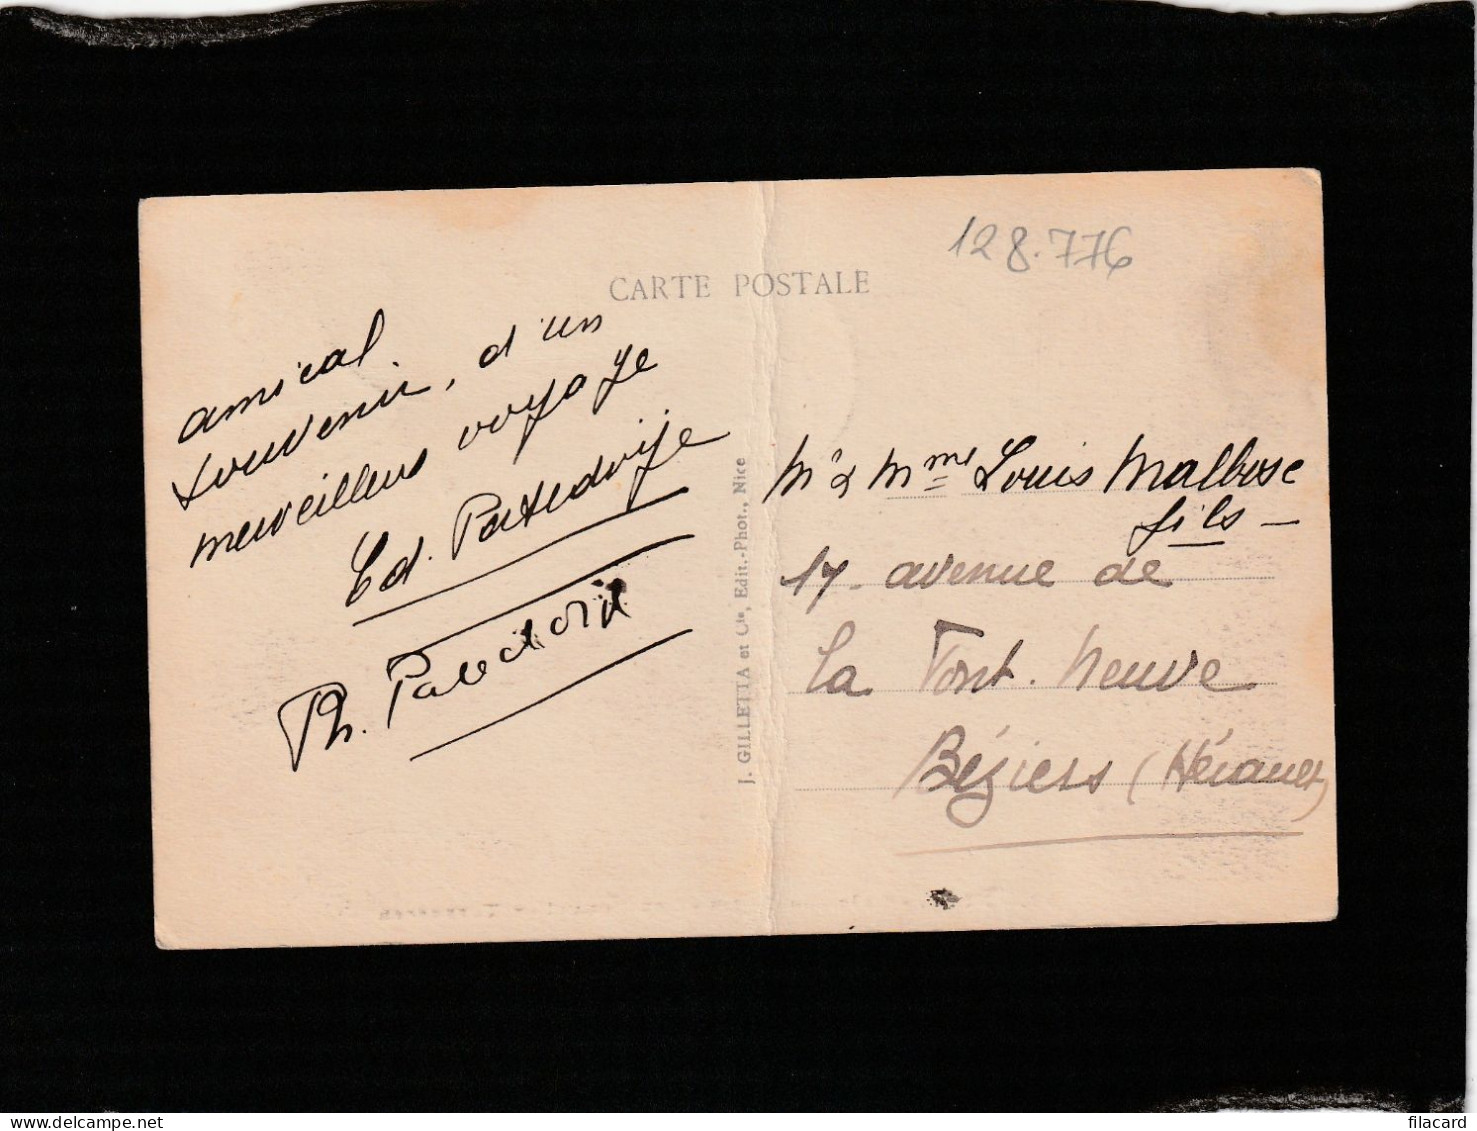 128.776
CARTE POSTALE
amical
souvenir, d'un
merveilleux voyage
Ed.
Ph.
J. GILLETTA et Cie, Edit.-Phot., Nice
Mr & Mme Louis Malbosc
fils -
17 - avenue de
La Font. Neuve
Béziers (Hérault)
filacard